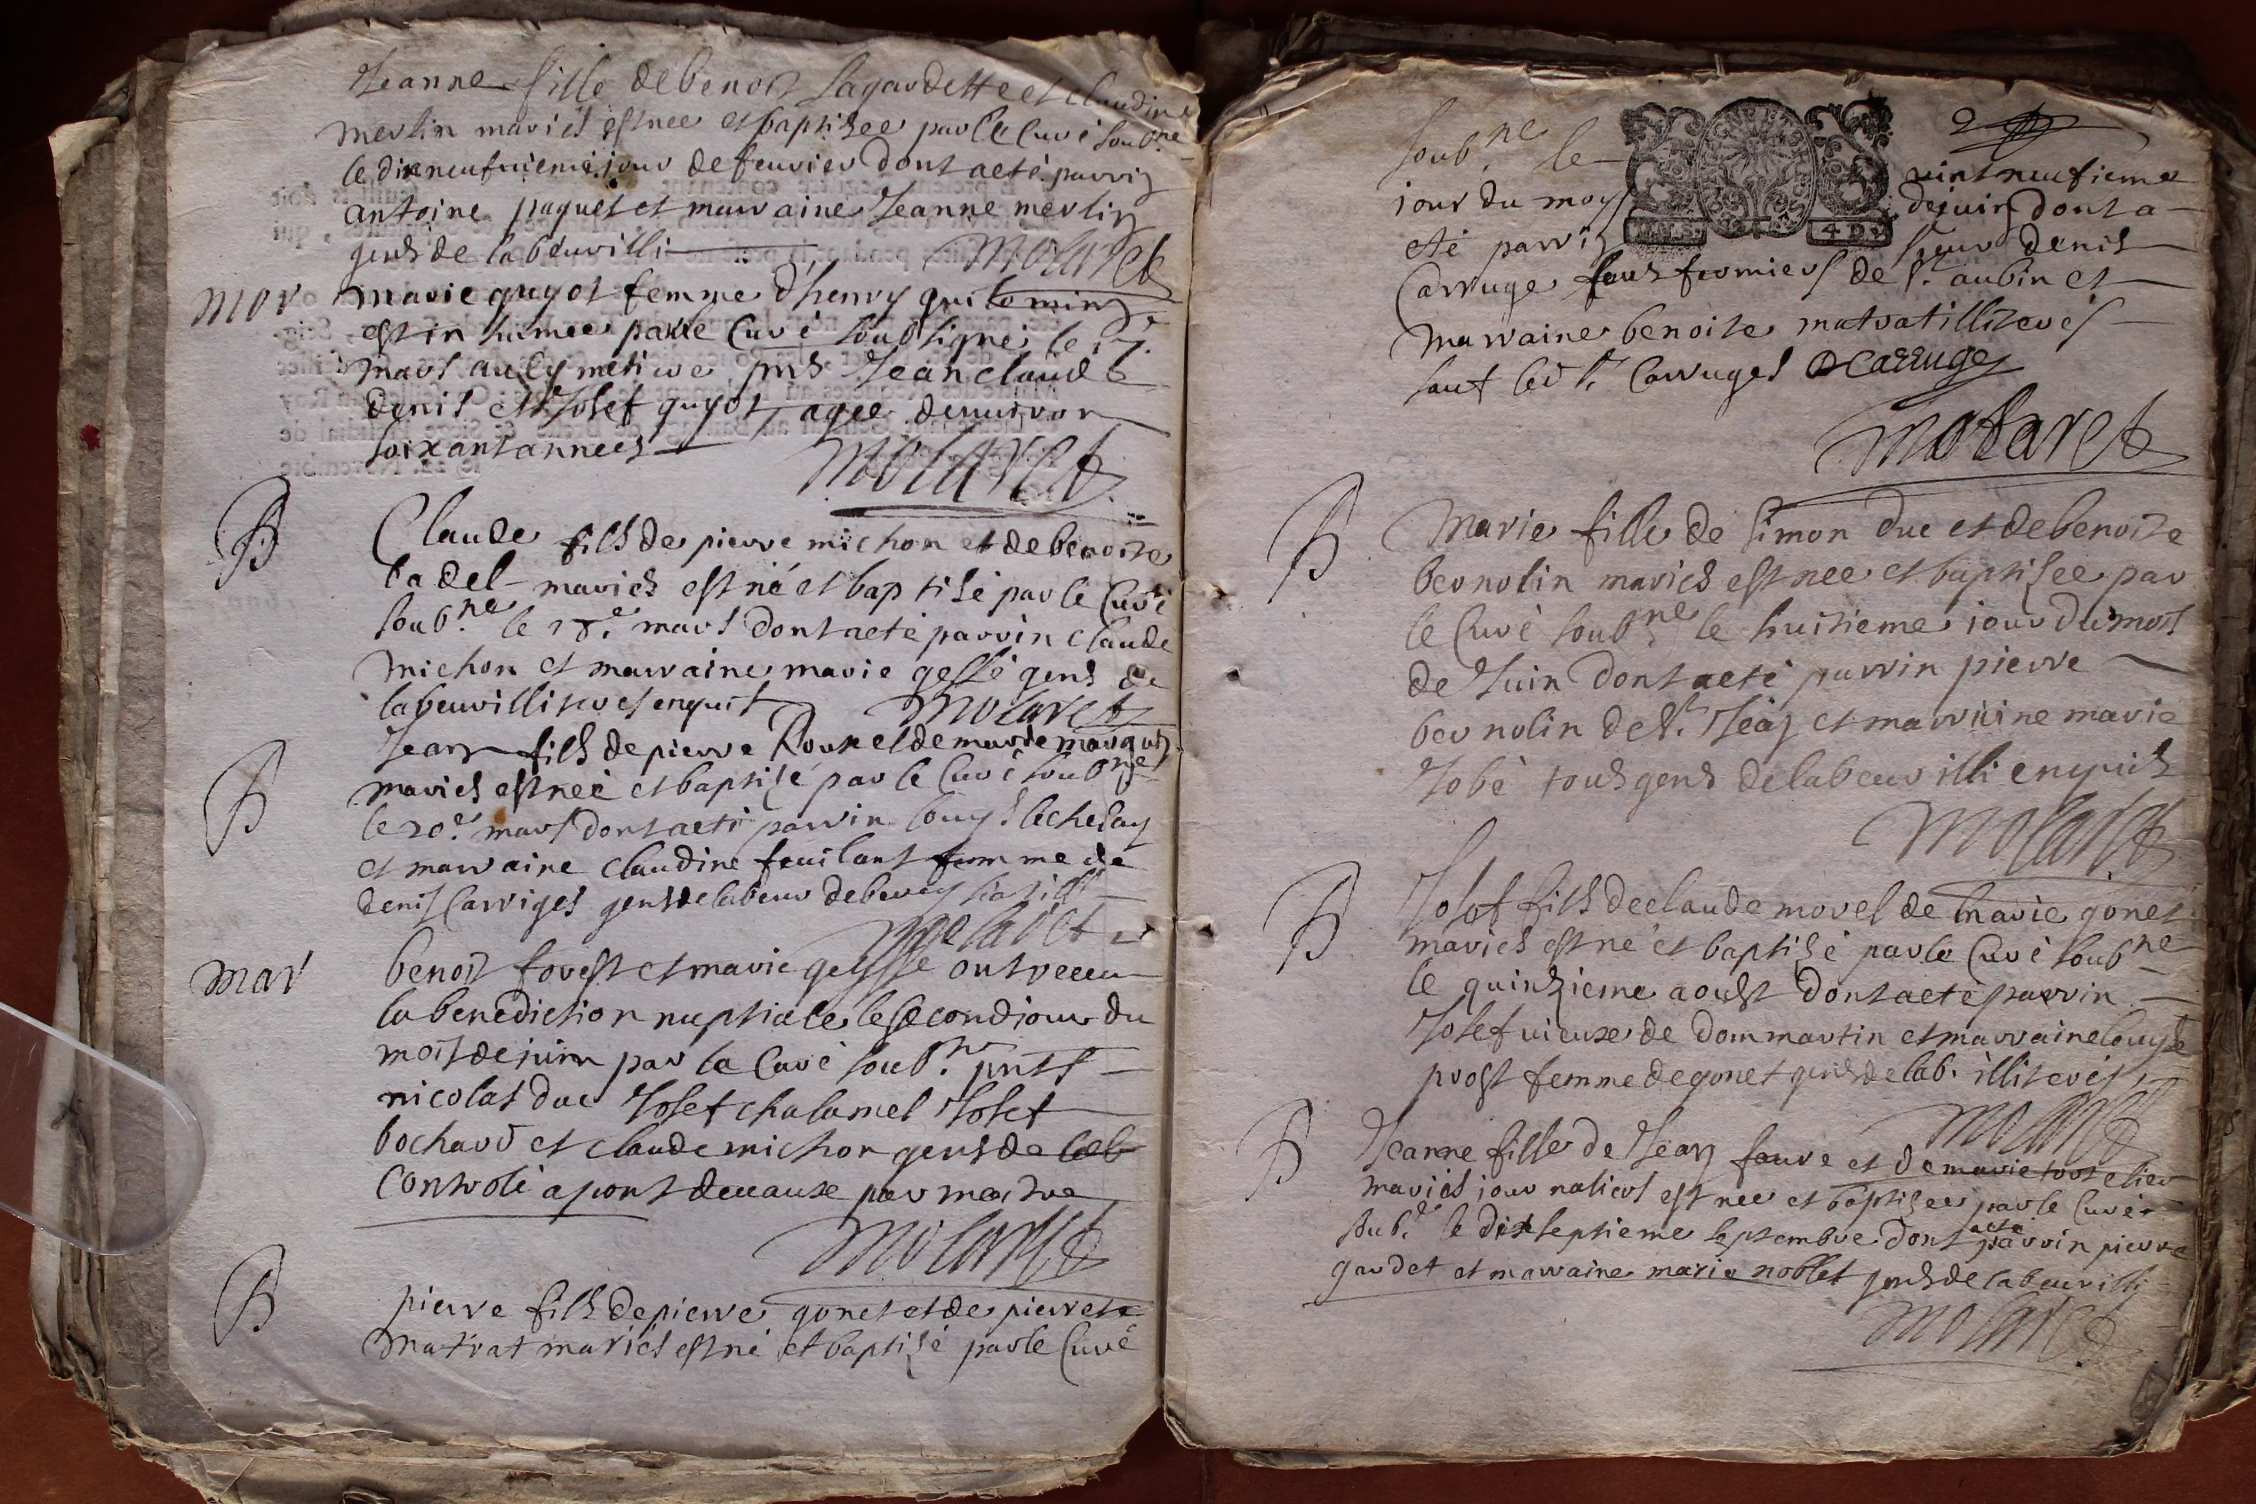 Jeanne fille de benoit Lagardette et claudine
merlin mariés est nee et baptisee par le Curé soub.ne
le dixneufuieme jour de feurier dont acte parrin
antoine paquet et marraine Jeanne merlin
gens de labeur illi
molaret
mor
marie guyot femme d'henry
est in humee par le Curé soubsigné le 17.e
mars au cymetiere pnts Jean claude
denis et Josef guyot, agee denuiron
soixant annees
molaret
B
Claude fils de pierre michon et de benoite
badel mariés est né et baptisé par le Curé
soub.ne le 18.e mars dont acte parrin claude
michon et marraine marie gessé gens de
labeur illiterés enquis
molaret
B
Jean fils de pierre Roux et de marie marguin
mariés est neé et baptisé par le Curé soub.ne
le 20.e mars dont acte parrin louys
et marraine claudine feuilant femme de
denis Carriges gens de labeur de
molaret
mar
benoit forest et marie geysse ont receu
la benediction nuptiale le second jour du
mois de juin par le Curé soub.ne pnts
nicolas duc Josef chalamel Josef
bochard et claude michon gens de lab
Controlé a pont de uaux par
molaret
B
pierre fils de pierre gonet et de pierrete
matrat mariés est né et baptisé par le Curé
2
soub.ne le vint neufieme
jour du moys de juin dont a
eté parrin sieur denis
Carruge sous fermier de S.t aubin et
marraine benoite matrat illiterés
sauf led s.r Carruges DCarruges
molaret
B
Marie fille de Simon duc et de benoite
bernolin mariés est nee et baptisee par
le Curé soub.ne le huitieme jour du mois
de Juin dont acte parrin pierre
bernolin de S.t Jean et marraine marie
Jobé tous gens de labeur illi enquis
molaret
B
Josef fils de claude morel de marie gonet
mariés est né et baptisé par le Curé soub.ne
le quinzieme aoust dont acte parrin
Josef uieux de dommartin et marraine louyse
prost femme de gonet gens de lab. illiterés
molaret
B
Jeanne fille de Jean faure et de marie
mariés jour naliers est nee et baptisee par le Curé
soub. le dixseptieme septembre dont acte parrin pierre
gardet et marraine marie noblet gens de labeur illi
molaret